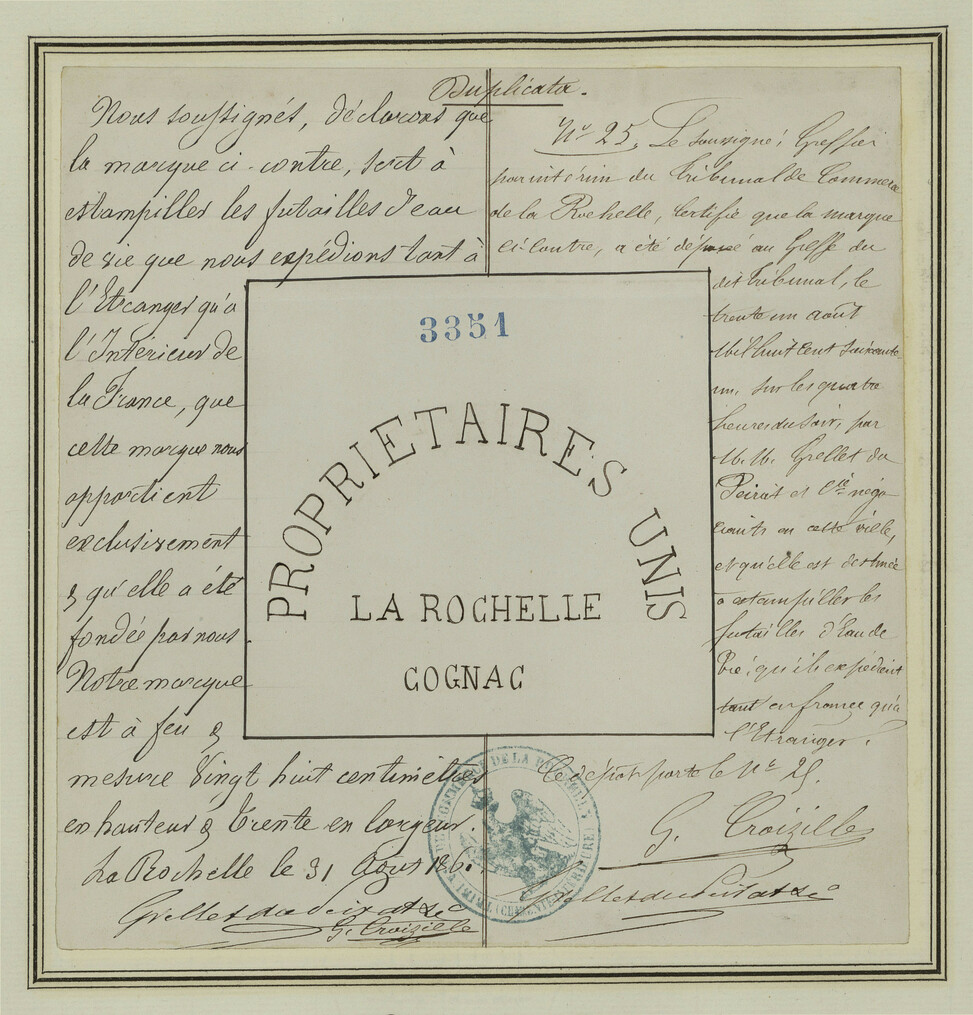 Duplicata.
Nous soussignés, déclarons que
la marque ci-contre, sert à
estampiller les futailles d'eau
de vie que nous expédions tant à
l'Etranger qu'à
l'Intérieur de
la France, que
cette marque nous
appartient
exclusivement
& qu'elle a été
fondée par nous
Notre marque
est à feu &
mesure Vingt huit centimètres
en hauteur & Trente en largeur.
La Rochelle le 31 Août 1861.
G. Croizille
No 25. Le soussigné, Greffier
par intérim du Tribunal de Commerce
de la Rochelle, Certifie que la marque
ci-contre, a été déposé au Greffe du
dit Tribunal, le
trente un août
Mil huit Cent soixante
un, sur les quatre
heures du soir, par
M. M. Grellet du
Peirat et Cie négo-
ciants en cette ville,
et qu'elle est destinée
à estampiller les
futailles d'Eau de
Vie, qu'ils expédient
tant en france qu'à
l'Etranger.
Ce dépôt porte le No 25.
G. Croizille
3351
PROPRIETAIRES UNIS
LA ROCHELLE
COGNAC